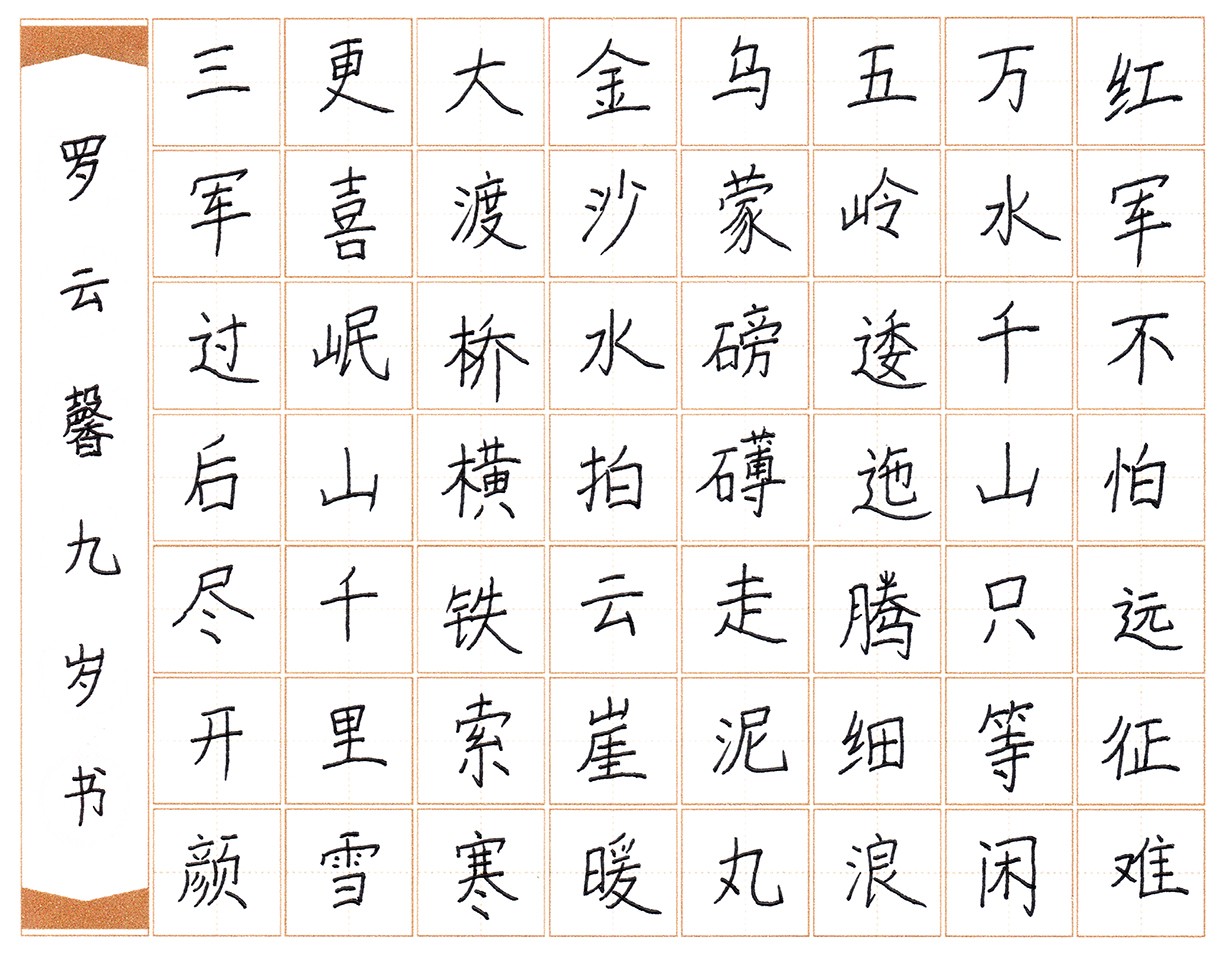 红军不怕远征难
万水千山只等闲
五岭逶迤腾细浪
乌蒙磅礴走泥丸
金沙水拍云崖暖
大渡桥横铁索寒
更喜岷山千里雪
三军过后尽开颜
罗云馨九岁书